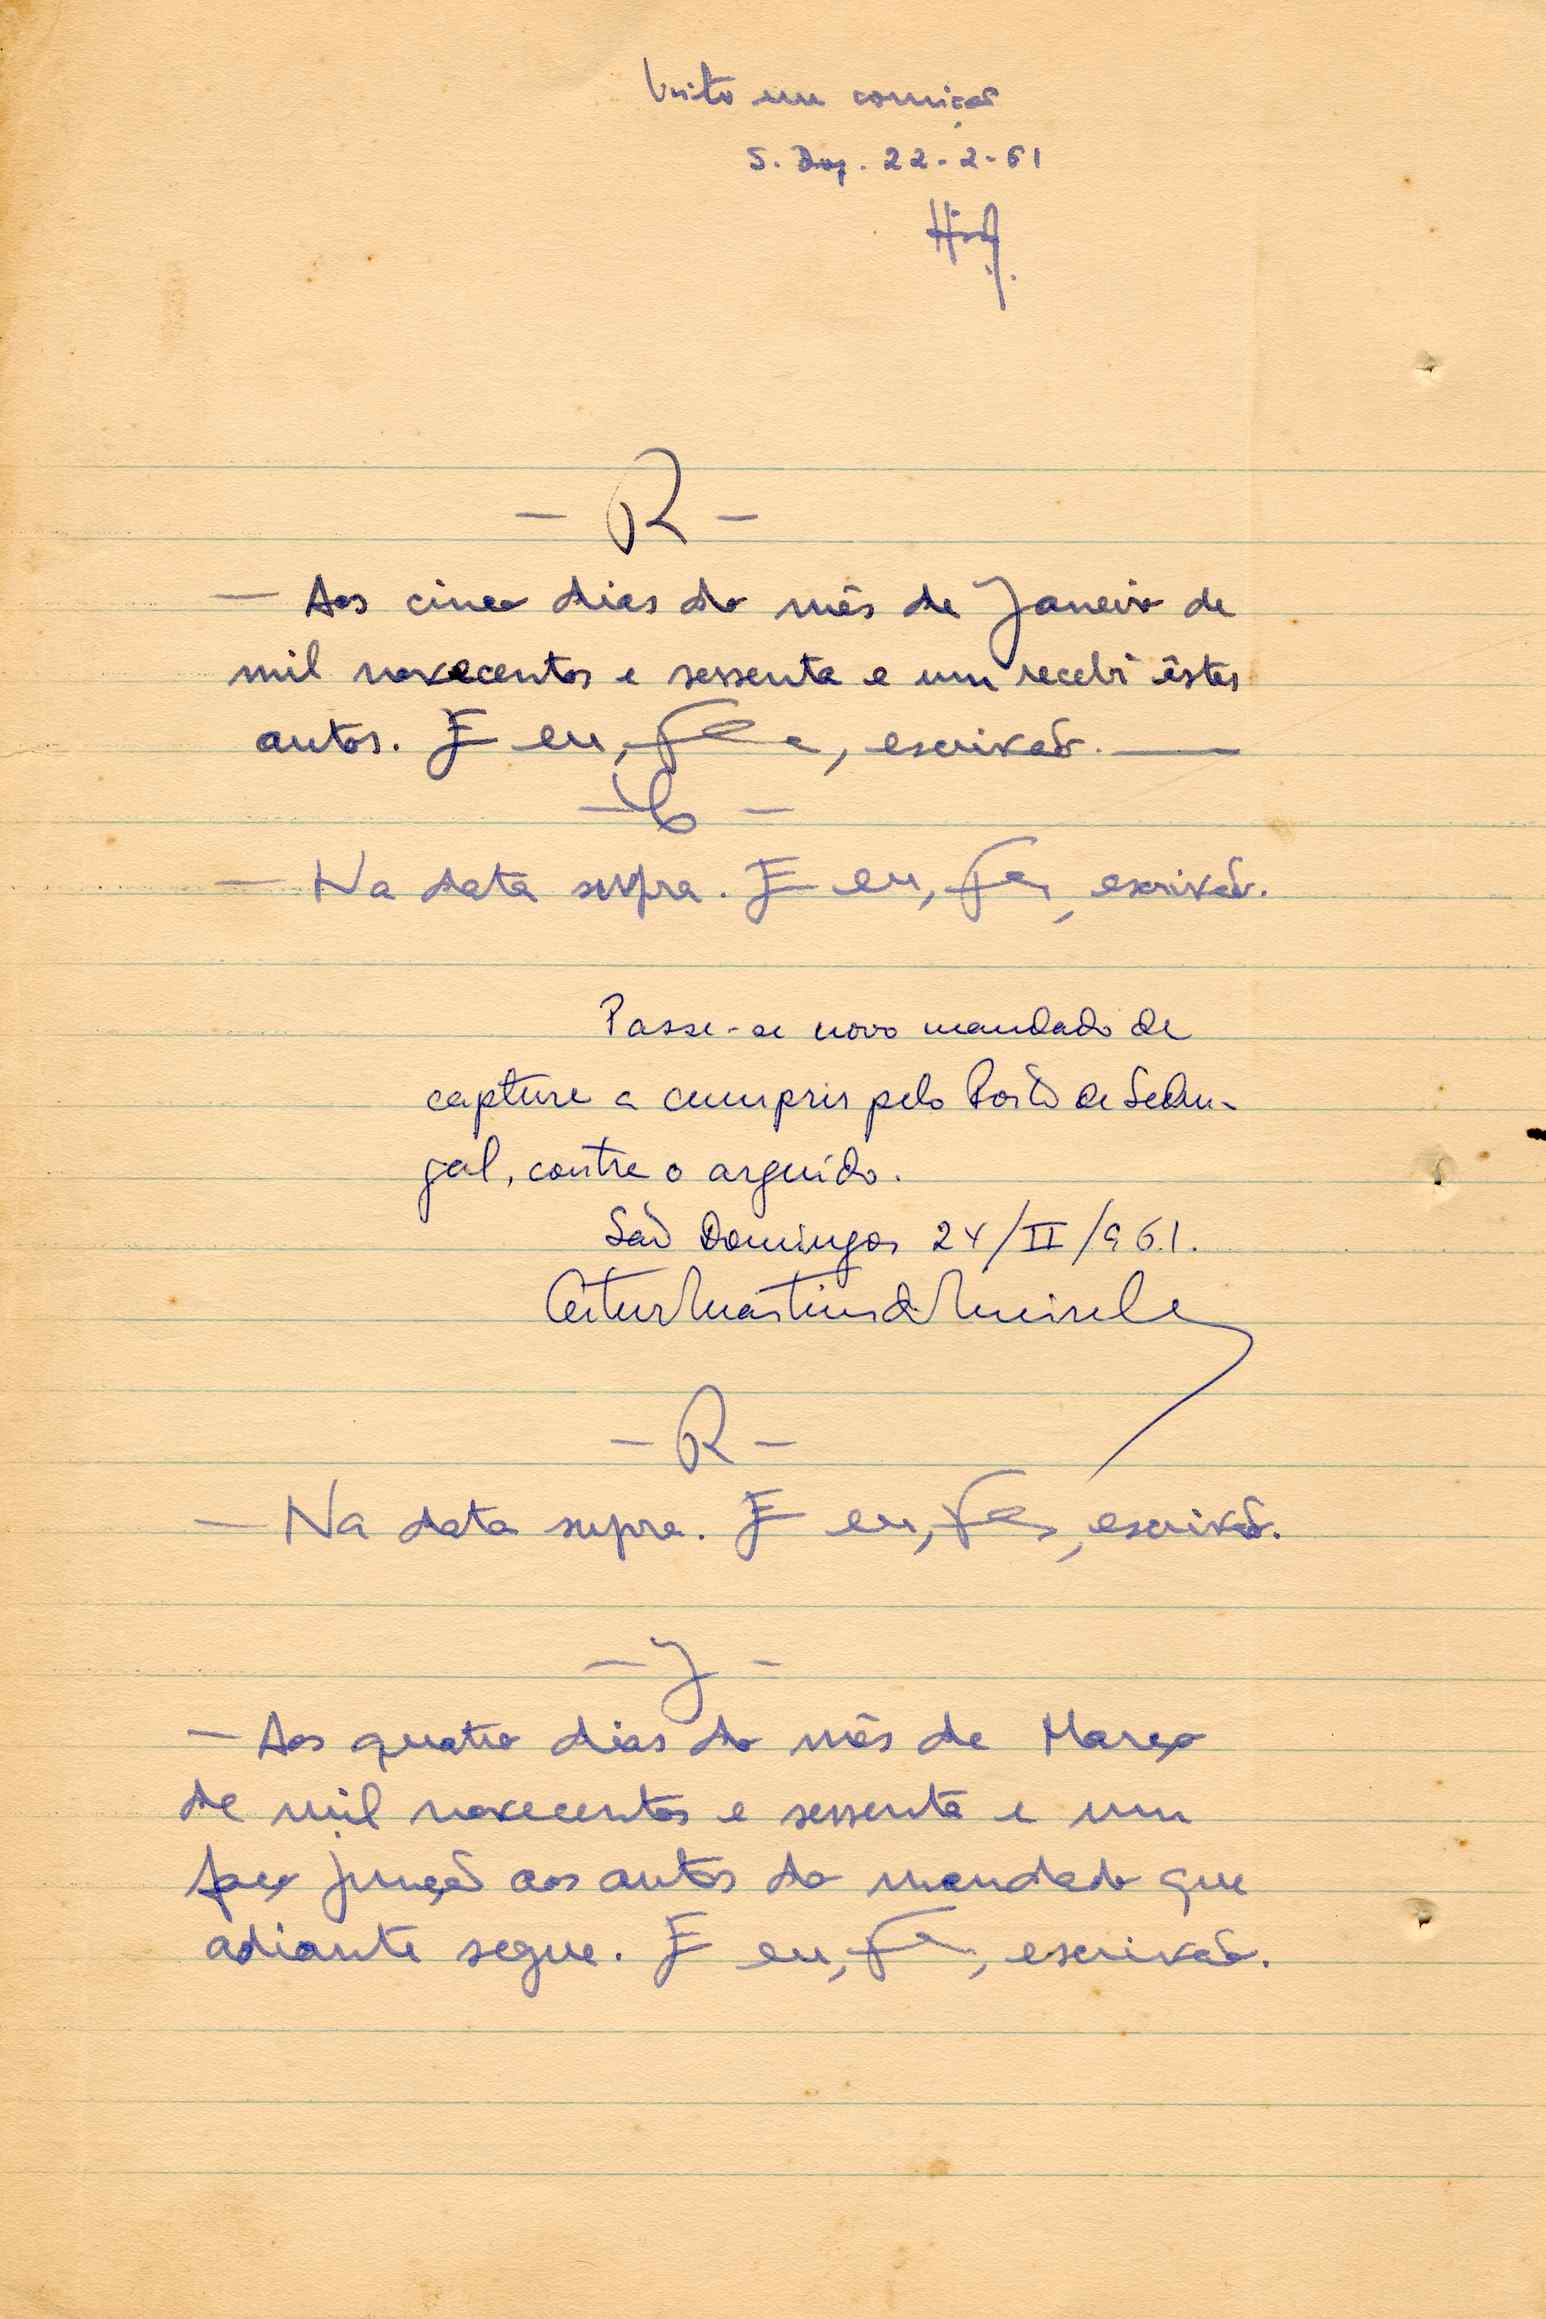 Visto em correição
S. Dog. 22-2-61
- R -
- Aos cinco dias do mês de Janeiro de
mil novecentos e sessenta e um recebi êstes
autos. E eu, , escrivão.
- C -
- Na data supra. E eu, , escrivão.
Passe-se novo mandado de
captura a cumprir pelo Posto de Sedun-
gal, contra o arguido.
São Domingos 24/II/961.
Artur Martins de Meireles
- R -
- Na data supra. E eu, , escrivão.
- J -
- Aos quatro dias do mês de Março
de mil novecentos e sessenta e um
faço junção aos autos do mandado que
adiante segue. E eu, , escrivão.